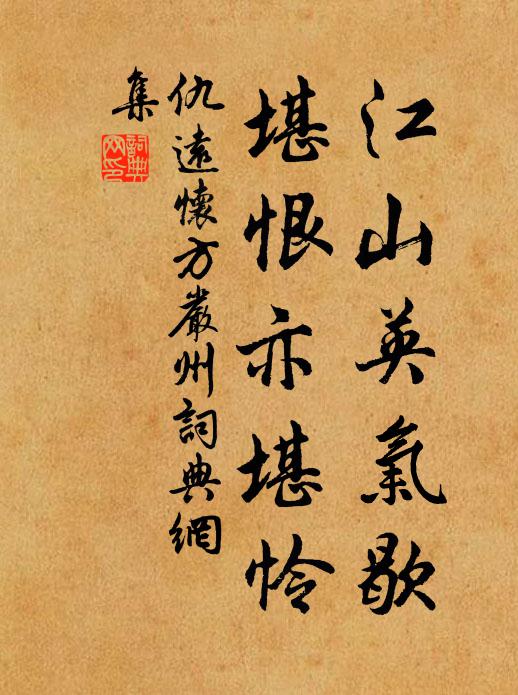 江山英氣歇
堪恨亦堪怜
仇遠懷方嚴州詞典網
集
詞典
网印